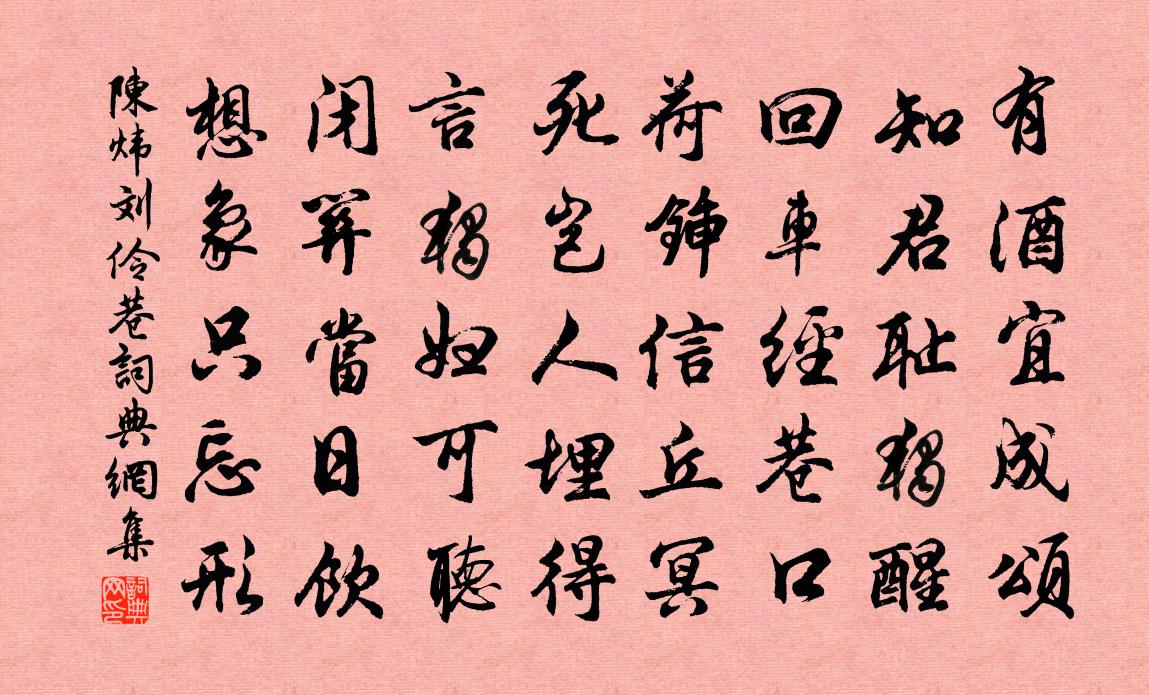 有酒宜成頌
知君耻獨醒
回車經巷口
荷鍤信丘冥
死豈人埋得
言獨妇可聽
闭關當日飲
想象只忘形
陳炜刘伶巷詞典網集
詞典网印